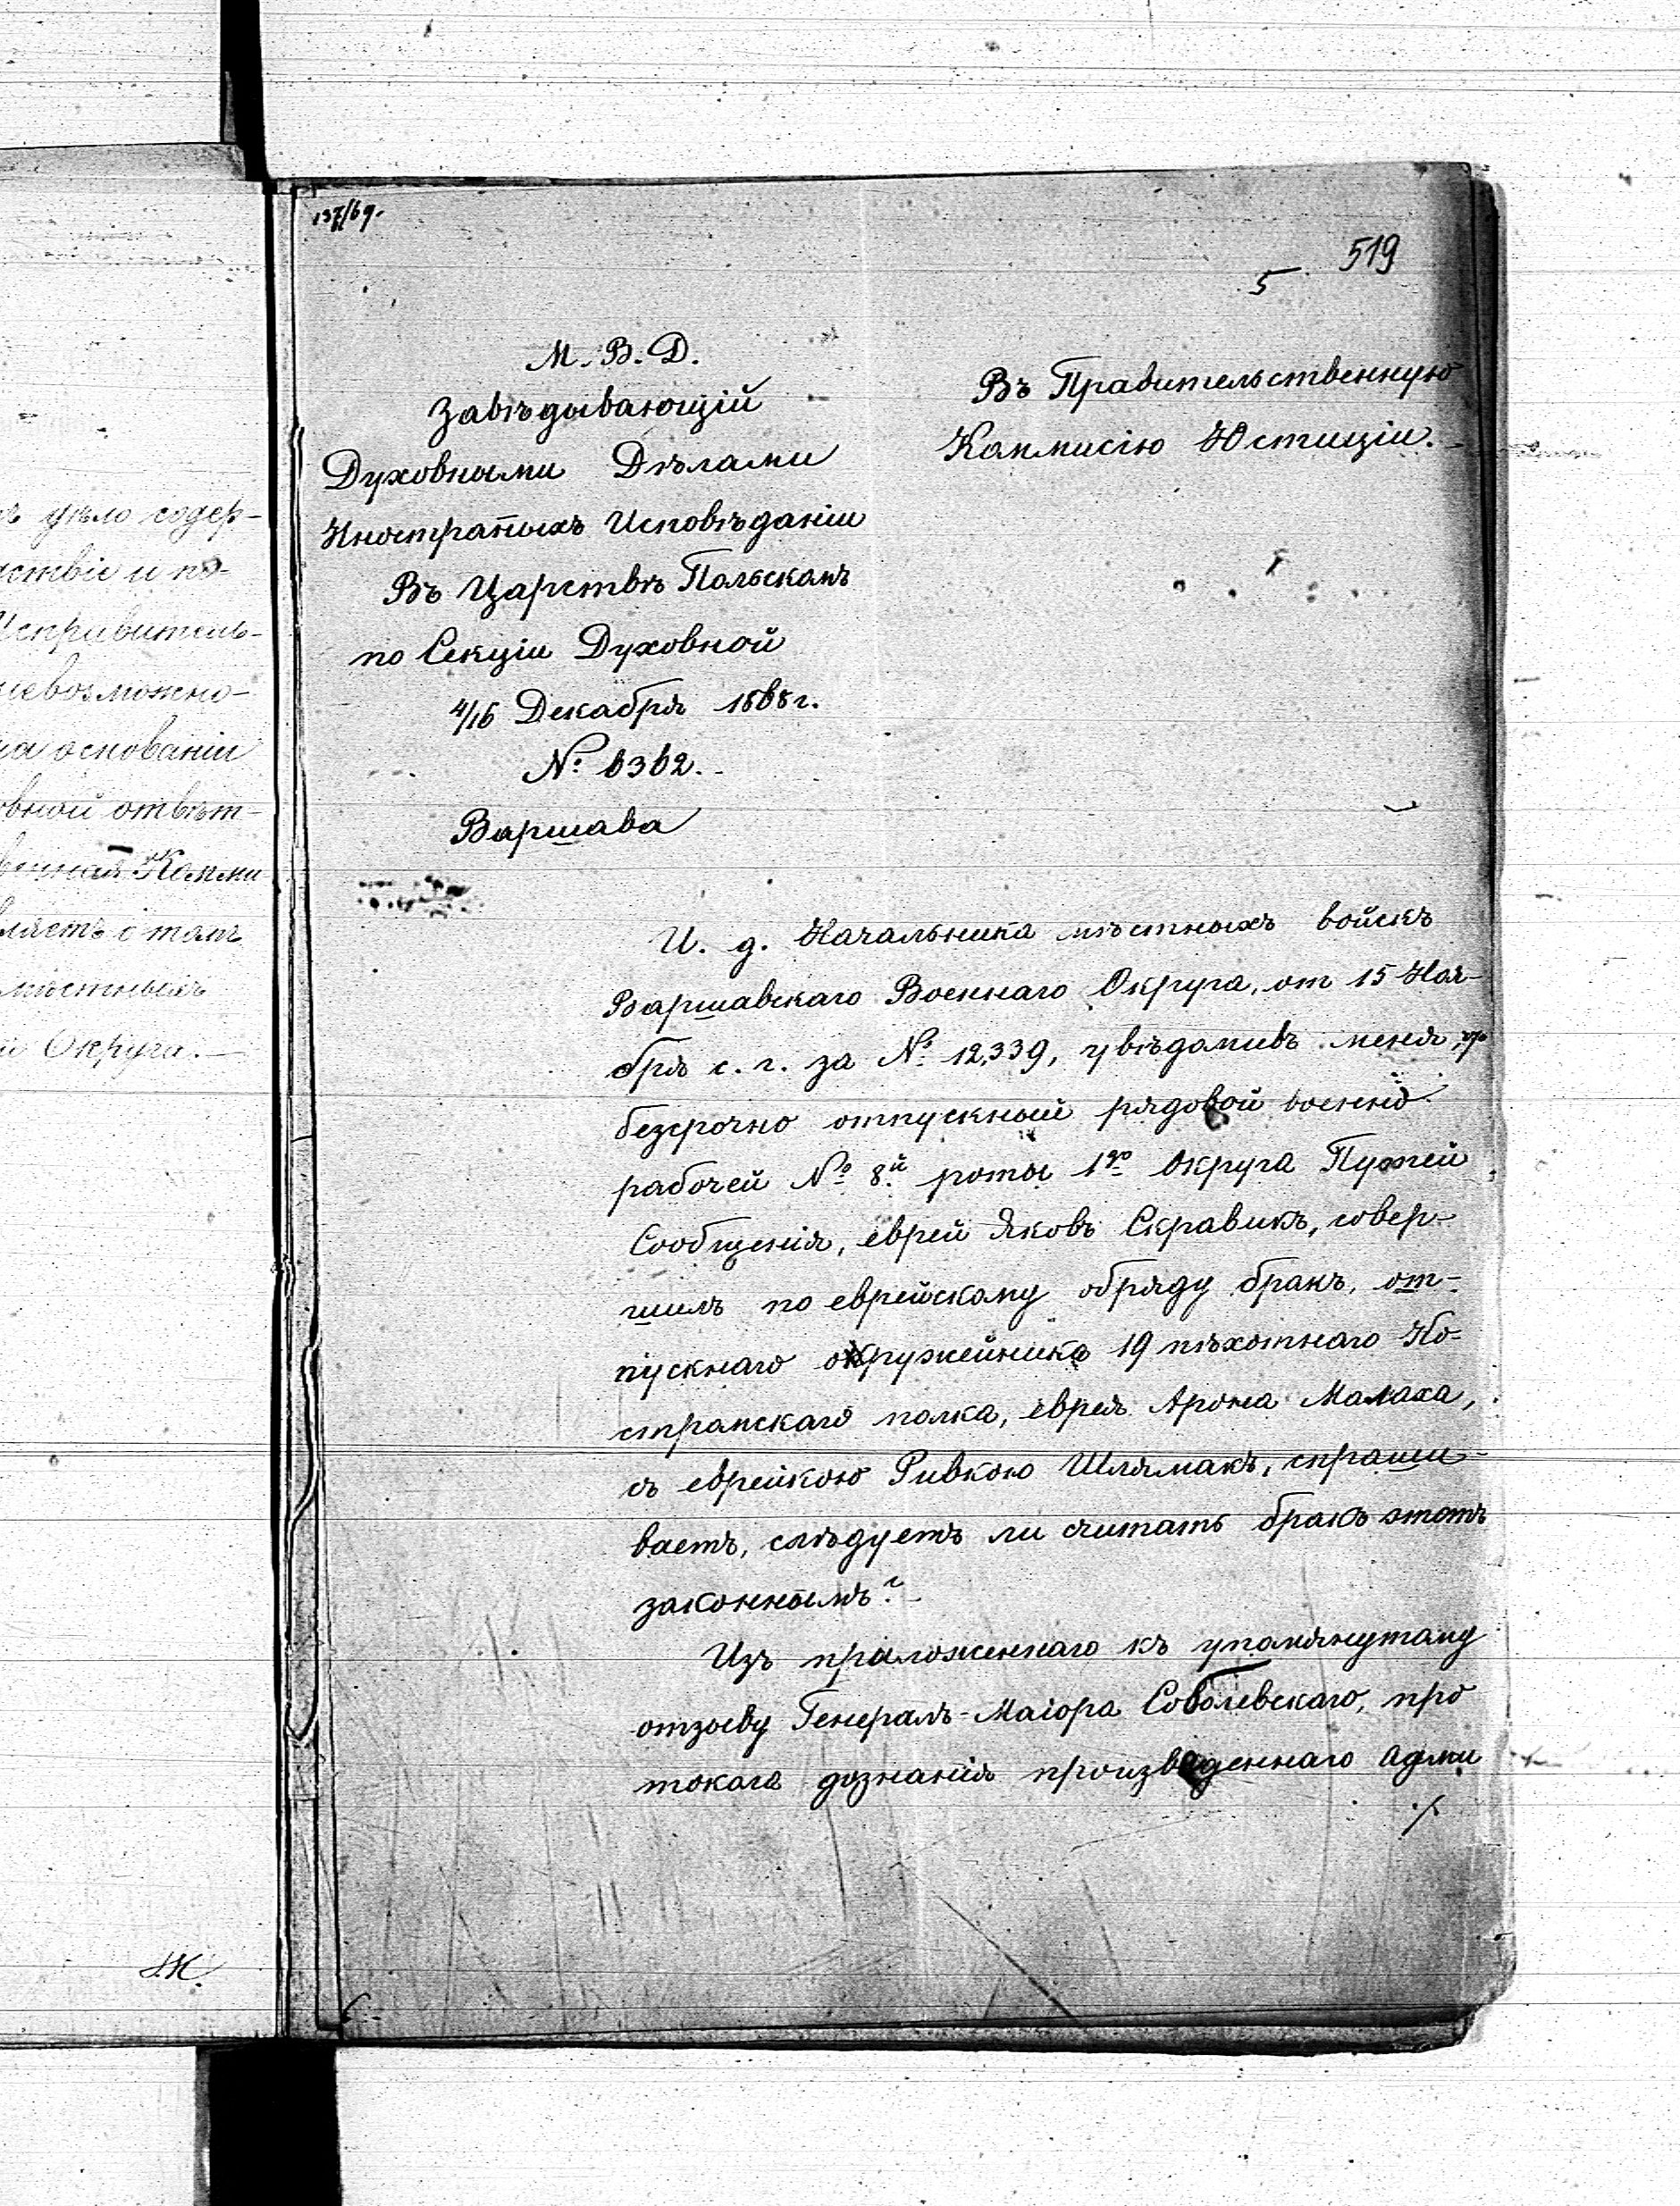 137/69.
519
5
М. В. Д.
Завѣдывающій
Духовными Дѣлами
Иностраныхъ Исповѣданіи
Въ Царствѣ Польскомъ
по Секціи Духовной
4/16 Декабря 1868 г.
№ 6362.
Варшава
Въ Правительственную
Коммисію Юстиціи.
И. д. Начальника мѣстныхъ войскъ
Варшавскаго Военнаго Округа, от 15 Ноя-
бря с. г. за № 12,339, увѣдомивъ меня, что
безсрочно отпускный рядовой военно
рабочей № 8й роты 1го Округа Путей
Сообщенія, еврей Яковъ Скравикъ, совер-
шилъ по еврейскому обряду бракъ, от-
пускнаго оружейника 19 пѣхотнаго Ко-
стромскаго полка, еврея Арона Малаха,
съ еврейкою Ривкою Шлямакъ, спраши-
ваетъ, слѣдуетъ ли считать бракъ этотъ
законнымъ?
Изъ приложеннаго къ упомянутому
отзыву Генералъ-Маіора Соболевскаго, про
токола дознанія произведеннаго Адми
./.
ъ дѣло содер-
дствіе и по-
Исправитель-
невозможно-
на основаніи
овной отвѣт-
венная Комми
вляетъ о томъ
мѣстныхъ
Округа.